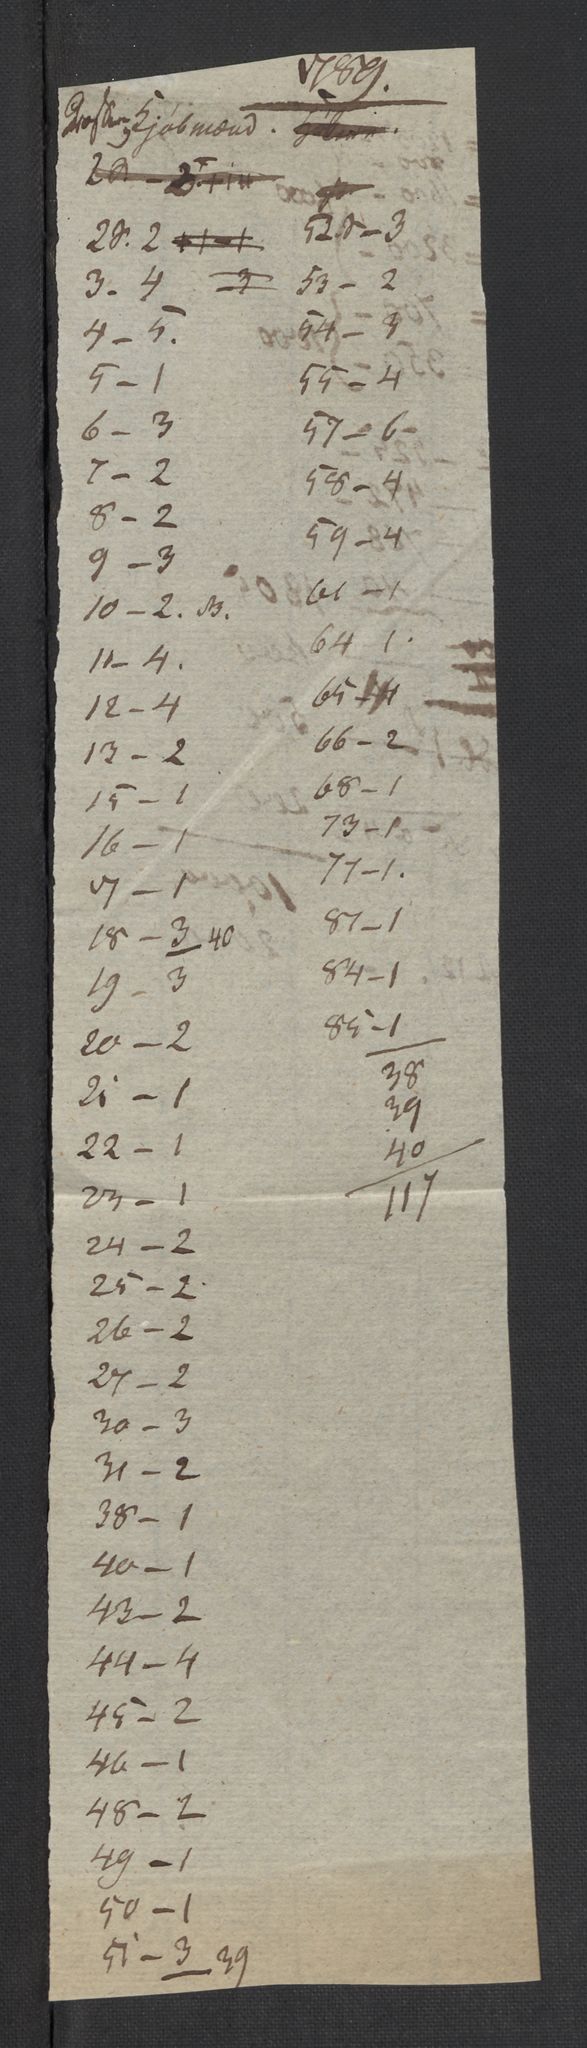 1789.
Kjöbmænd.
28. 2
3 - 4
4 - 5.
5 - 1
6 - 3
7 - 2
8 - 2
9 - 3
10 - 2.
11 - 4.
12 - 4
13 - 2
15 - 1
16 - 1
17 - 1
18 - 3 40
19 - 3
20 - 2
21 - 1
22 - 1
23 - 1
24 - 2
25 - 2
26 - 2
27 - 2
30 - 3
31 - 2
38 - 1
40 - 1
43 - 2
44 - 4
45 - 2
46 - 1
48 - 2
49 - 1
50 - 1
51 - 3 39
52 - 3
53 - 2
54 - 3
55 - 4
57 - 6
58 - 4
59 - 4
61 - 1
64 - 1.
65 - 4
66 - 2
68 - 1
73 - 1
77 - 1.
81 - 1
84 - 1
85 - 1
38
39
40
117